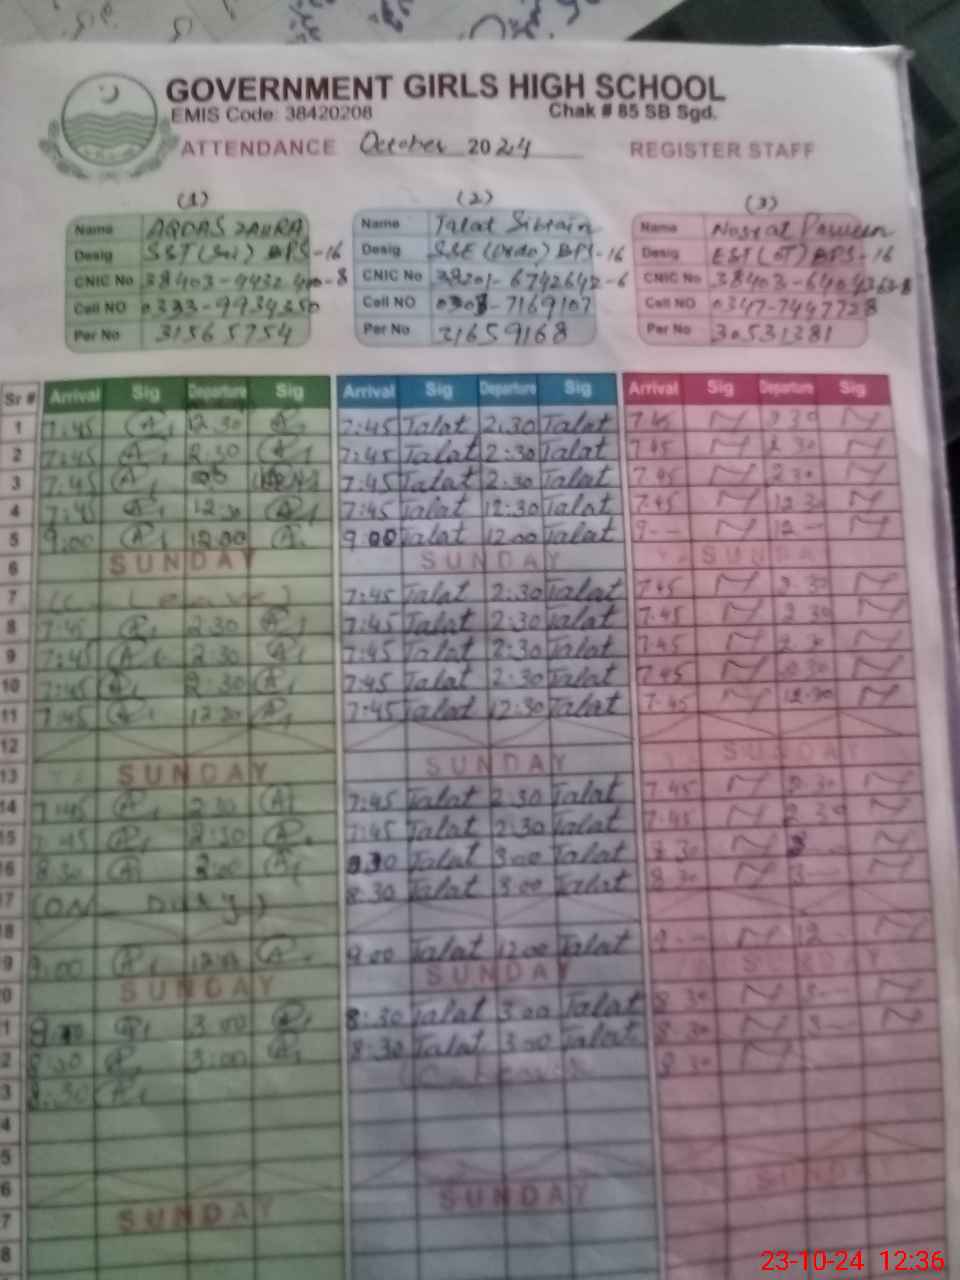 GOVERNMENT GIRLS HIGH SCHOOL
EMIS Code: 38420208 Chak # 85 SB Sgd.
ATTENDANCE October 2024 REGISTER STAFF
(1) (2) (3)
Name AQDAS ZAHRA Name Talat Sibtain Name Nosrat Parveen
Desig SST (Sci) BPS-16 Desig SSE (Urdu) BPS-16 Desig EST (OT) BPS-16
CNIC No CNIC No 38201-6742642-6 CNIC No
Cell NO 0333-9934350 Cell NO 7169107 Cell NO 0347-7447728
Per No 31565754 Per No 31659168 Per No 30531381
Sr # Arrival Sig Departure Sig Arrival Sig Departure Sig Arrival Sig Departure Sig
1 7:45 12.30 7:45 Talat 2:30 Talat 7.45 2 30
2 7:45 2:30 7:45 Talat 2:30 Talat 7.45 2 30
3 7:45 7:45 Talat 2:30 Talat 7.45 2 30
4 7:45 12:30 7:45 Talat 12:30 Talat 7.45 12 30
5 9:00 12:00 9 00 Talat 12 00 Talat 9 -- 12 --
6 SUNDAY SUNDAY SUNDAY
7 Leave 7:45 Talat 2:30 Talat 7 45 2 30
8 7:45 2:30 7:45 Talat 2:30 Talat 7.45 2 30
9 7:45 2:30 7:45 Talat 2:30 Talat 7.45
10 7:45 2:30 7:45 Talat 2:30 Talat 7 45 2 30
11 7:45 12:30 7:45 Talat 12:30 Talat 7.45 12.30
12
13 SUNDAY SUNDAY SUNDAY
14 7:45 2:30 7:45 Talat 2:30 Talat 7.45 2.30
15 7:45 2:30 7:45 Talat 2:30 Talat 7.45 2 30
16 8:30 8:30 Talat 3:00 Talat 8 30 3
17 (ON Duty) 8:30 Talat 3 00 Talat 8 30 3 --
18
9 9:00 9:00 Talat 12 00 Talat 9 -- 12
20 SUNDAY SUNDAY SUNDAY
1 3:00 8:30 Talat 3 00 Talat 8 30 3 --
2 3:00 8:30 Talat 3 00 Talat 8 30 3 --
3 8:30 8 30
4
5
6
7 SUNDAY SUNDAY SUNDAY
8
23-10-24 12:36